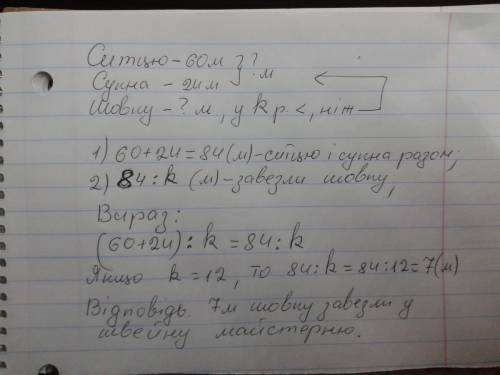 Ситцю - 60м } ?
Сукна - 24м } м
Шовку - ? м., у k р. <, ніж
1) 60+24=84(м)-ситцю і сукна разом;
2) 84:k (м)-завезли шовку;
Вираз:
(60+24):k=84:k
Якщо k=12, то 84:k=84:12=7(м)
Відповідь. 7м шовку завезли у
швейну майстерню.